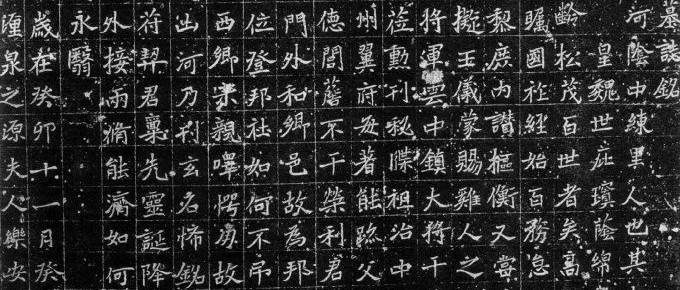 墓誌銘
河陰中練里人也其
皇魏世庇瓊蔭綿
齡松茂百世者矣高
矚國社經始百務忩
黎庶內讃樞衡又嘗
擬王儀蒙賜雞人之
將軍雲中鎮大將干
蒞勳刊秘牒祖治中
州翼府每著能跡父
德閭簷不干榮利君
門外和鄉邑故為邦
位登邦社如何不弔
西鄉宗親嗶愕故
山河乃刊玄石怖銘
符契君稟先靈誕降
外接兩脩能濟如何
永翳
歲在癸卯十一月癸
湮泉之源夫人樂安